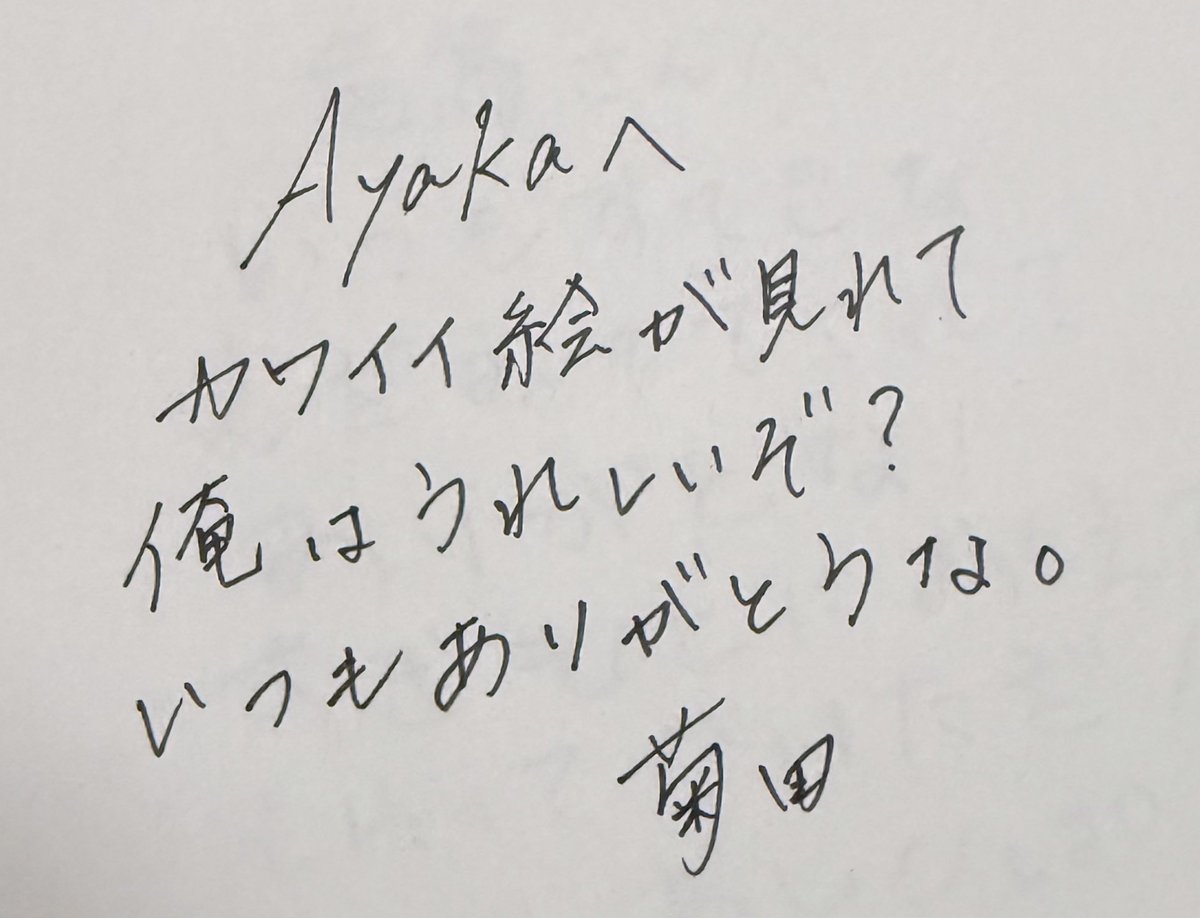 Ayakaへ
カワイイ絵が見れて
俺はうれしいぞ?
いつもありがとうな。
菊田